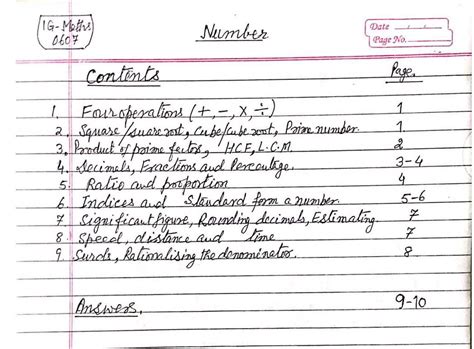 IG-Maths
0607
Number
Date
Page No.
Contents Page.
1. Four operations (+, -, x, ÷) 1
2. Square/suare root, Cube/cube root, Prime number. 1
3. Product of prime fectors, HCF, L.C.M 2
4. Decimals, Fractions and Percentage. 3-4
5. Ratio and proportion 4
6. Indices and Standard form a number. 5-6
7 Significant figure, Rounding decimals, Estimating. 7
8 Speed, distance and time 7
9 Surds, Rationalising the denominator. 8
Answers. 9-10